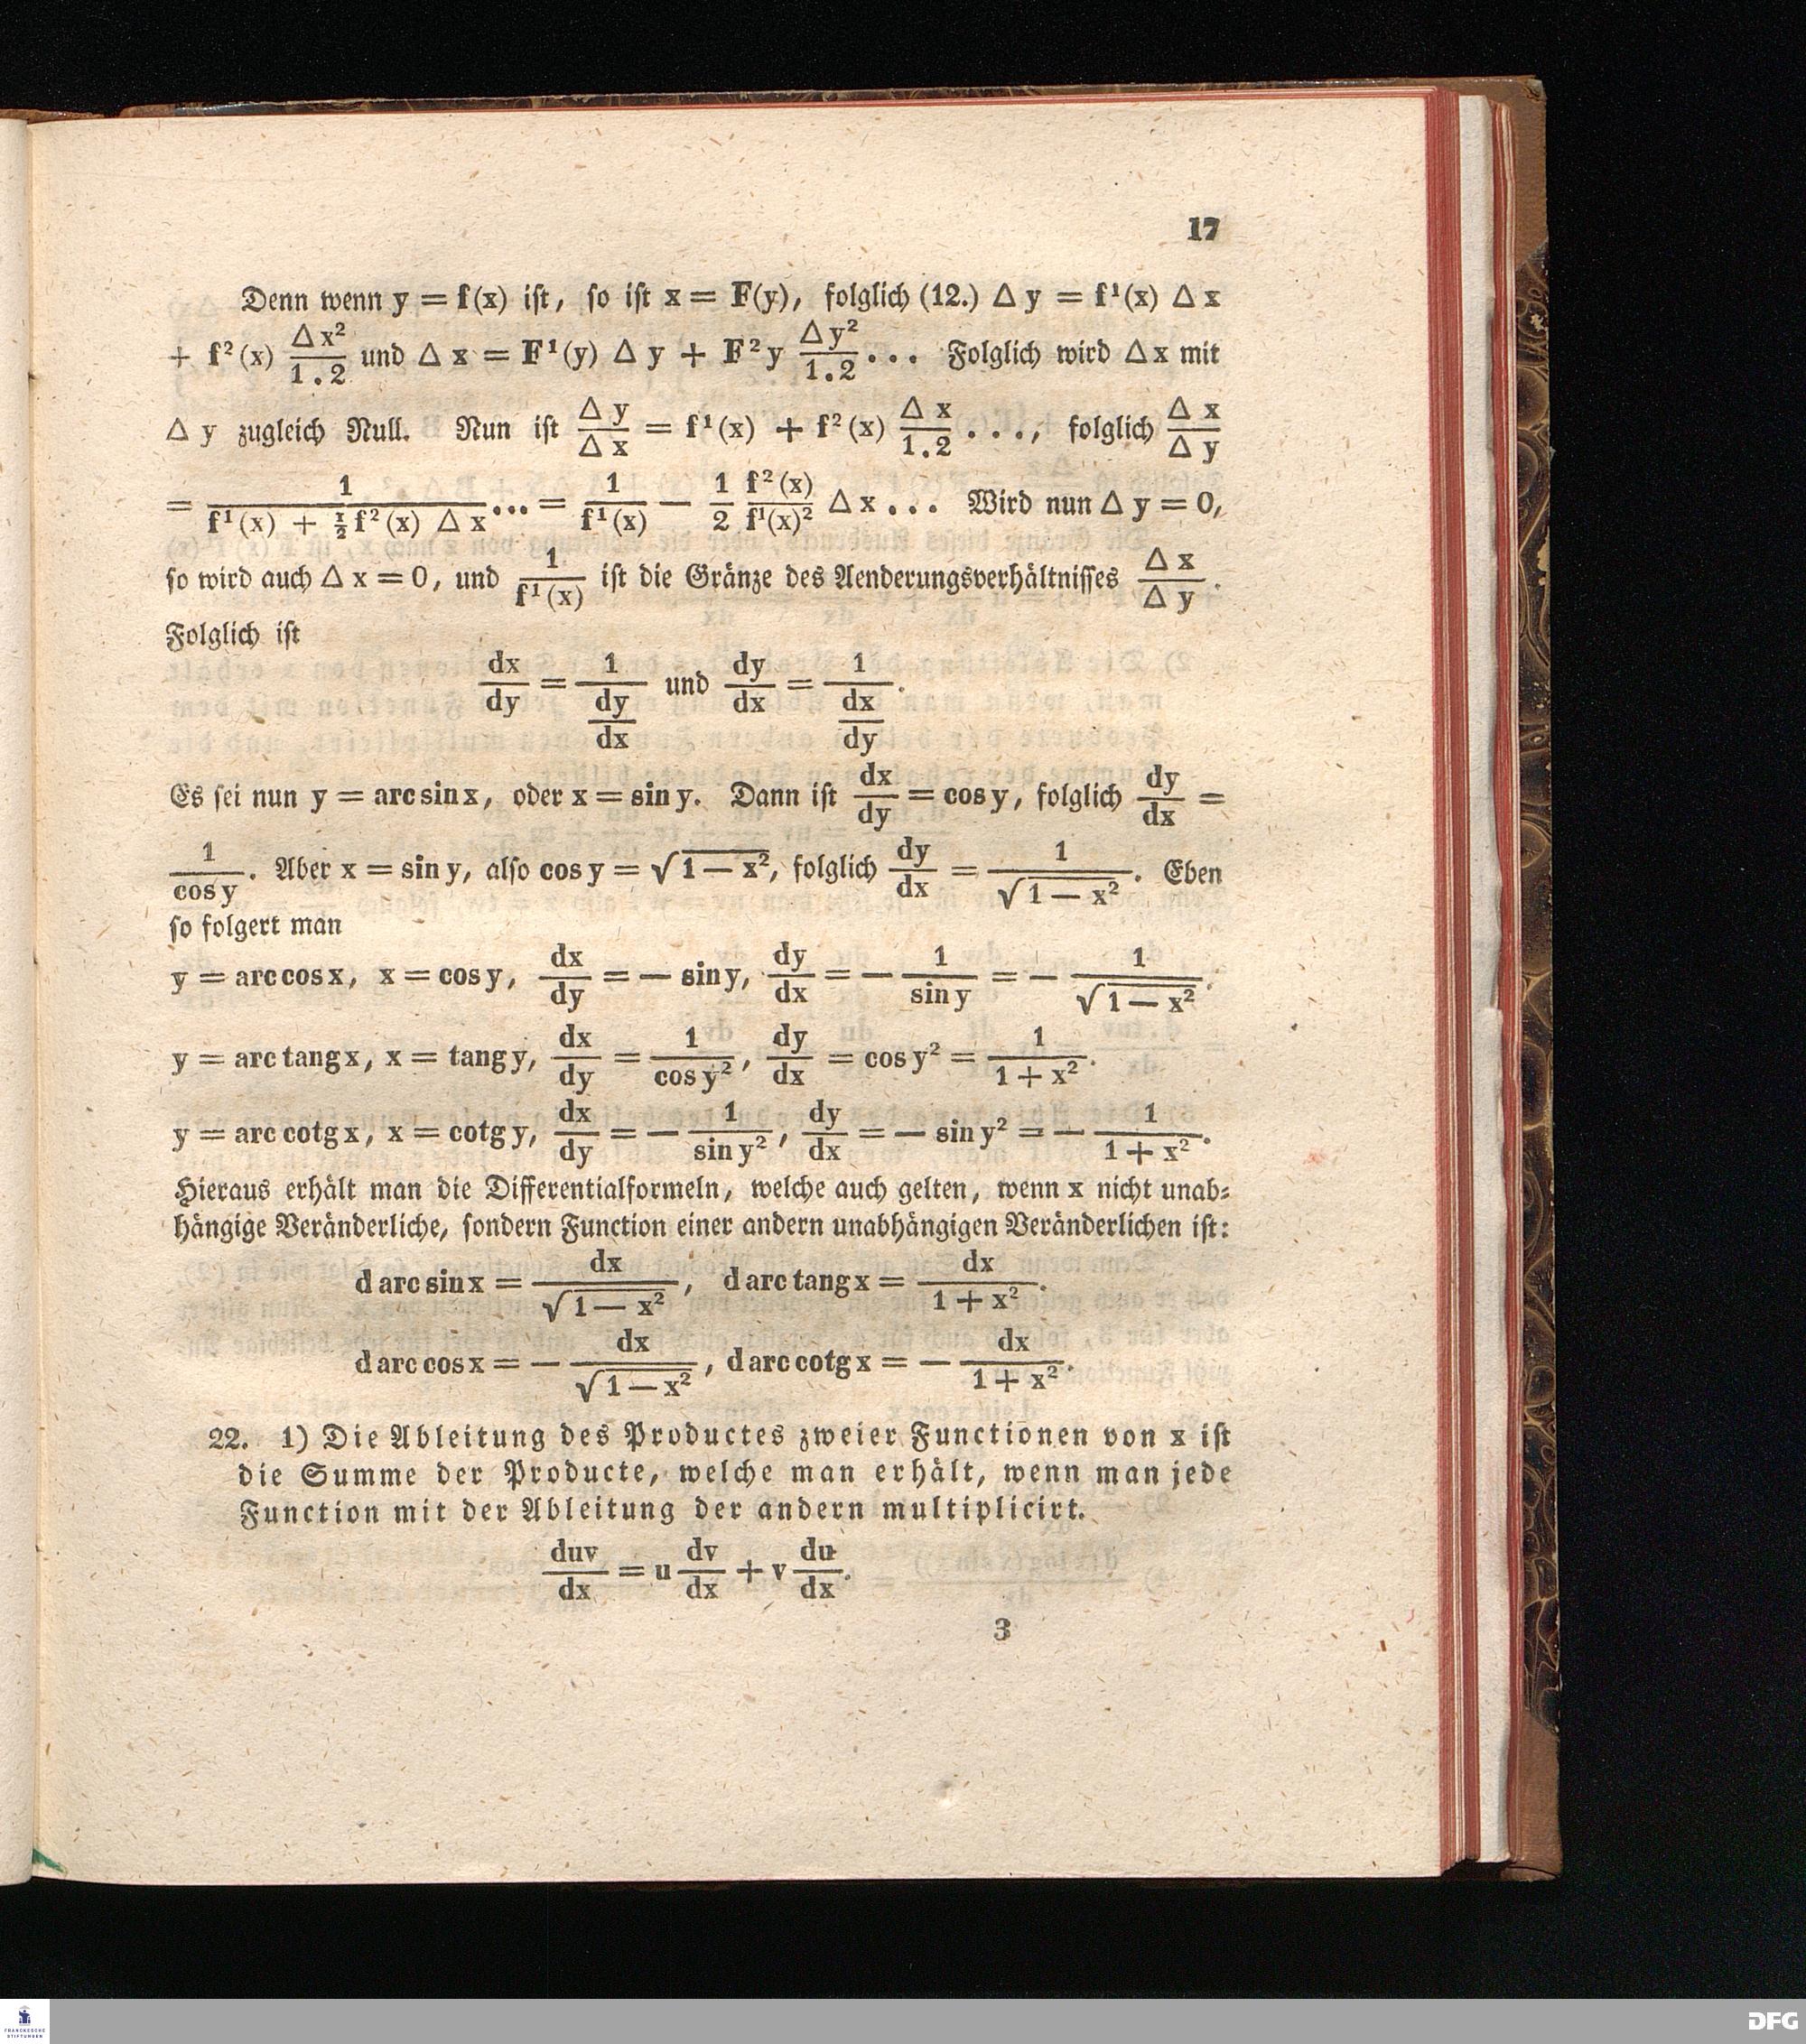 17
Denn wenn y = f(x) ist, so ist x = F(y), folglich (12.) Δ y = f¹(x) Δ x
+ f²(x) Δx²/1.2 und Δ x = F¹(y) Δ y + F²y Δy²/1.2 . . . Folglich wird Δx mit
Δ y zugleich Null. Nun ist Δ y/Δ x = f¹(x) + f²(x) Δ x/1.2 . . ., folglich Δ x/Δ y
= 1/(f¹(x) + ½ f²(x) Δ x) ... = 1/f¹(x) — 1/2 f²(x)/f¹(x)² Δ x . . . Wird nun Δ y = 0,
so wird auch Δ x = 0, und 1/f¹(x) ist die Gränze des Aenderungsverhältnisses Δ x/Δ y.
Folglich ist
dx/dy = 1/(dy/dx) und dy/dx = 1/(dx/dy).
Es sei nun y = arc sin x, oder x = sin y. Dann ist dx/dy = cos y, folglich dy/dx =
1/cos y. Aber x = sin y, also cos y = √(1 — x²), folglich dy/dx = 1/√(1 — x²). Eben
so folgert man
y = arc cos x, x = cos y, dx/dy = — sin y, dy/dx = — 1/sin y = — 1/√(1 — x²).
y = arc tang x, x = tang y, dx/dy = 1/cos y², dy/dx = cos y² = 1/(1 + x²).
y = arc cotg x, x = cotg y, dx/dy = — 1/sin y², dy/dx = — sin y² = — 1/(1 + x²).
Hieraus erhält man die Differentialformeln, welche auch gelten, wenn x nicht unab-
hängige Veränderliche, sondern Function einer andern unabhängigen Veränderlichen ist:
d arc sin x = dx/√(1 — x²), d arc tang x = dx/(1 + x²).
d arc cos x = — dx/√(1 — x²), d arc cotg x = — dx/(1 + x²).
22. 1) Die Ableitung des Productes zweier Functionen von x ist
die Summe der Producte, welche man erhält, wenn man jede
Function mit der Ableitung der andern multiplicirt.
duv/dx = u dv/dx + v du/dx.
3
FRANCKESCHE
STIFTUNGEN
DFG